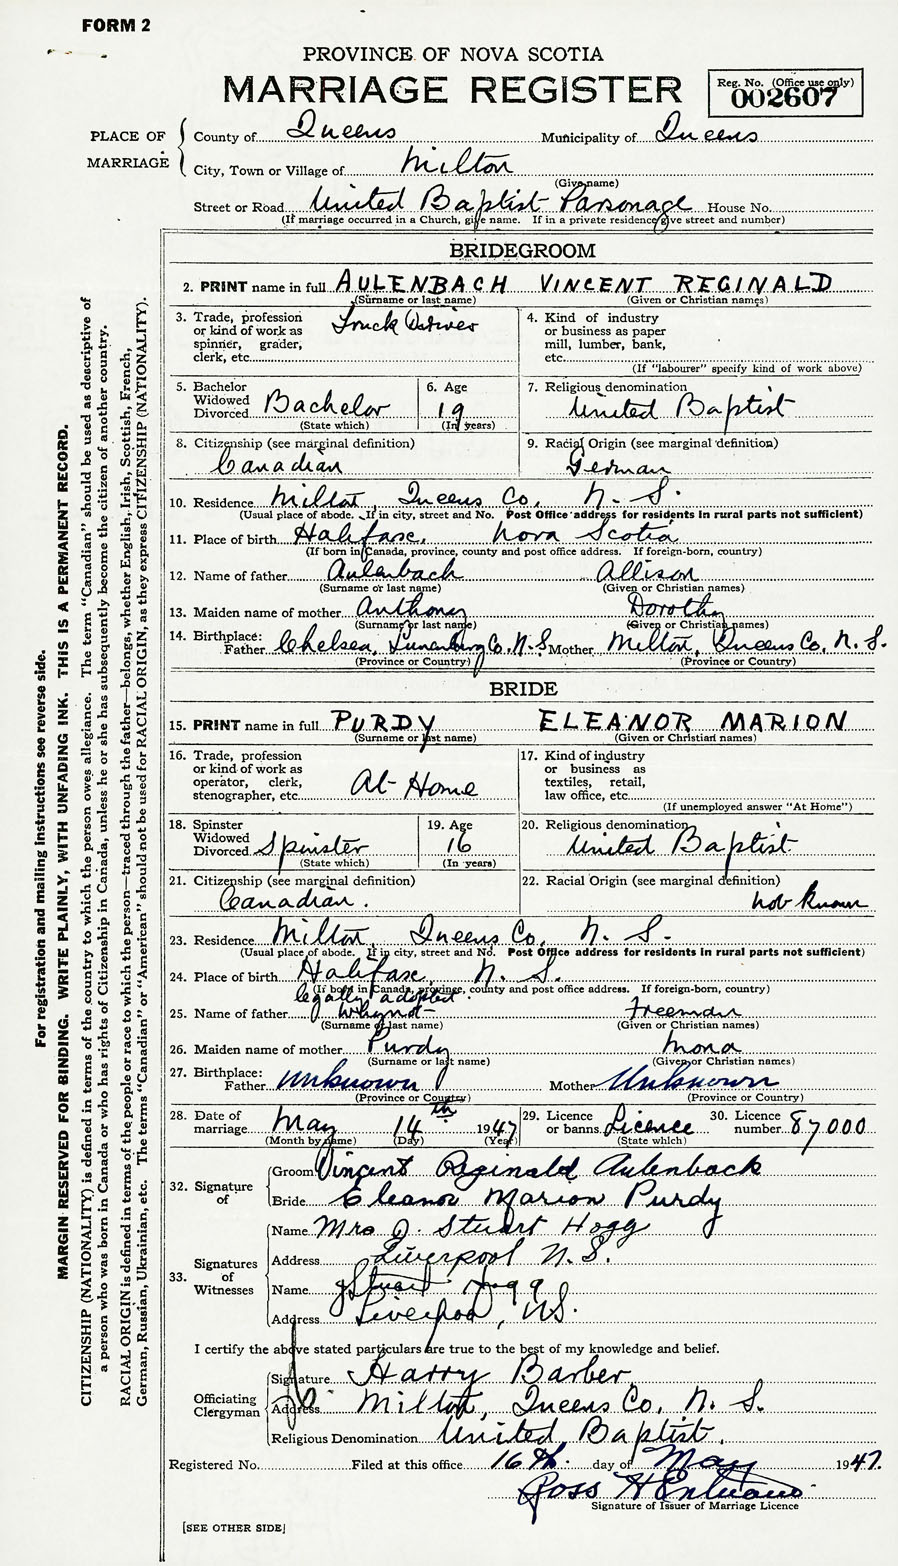 FORM 2
PROVINCE OF NOVA SCOTIA
MARRIAGE REGISTER
Reg. No. (Office use only)
002607
PLACE OF MARRIAGE
County of Queens Municipality of Queens
City, Town or Village of Milton
(Give name)
Street or Road United Baptist Parsonage House No.
(If marriage occurred in a Church, give name. If in a private residence give street and number)
BRIDEGROOM
2. PRINT name in full AULENBACH VINCENT REGINALD
(Surname or last name) (Given or Christian names)
3. Trade, profession or kind of work as spinner, grader, clerk, etc. Truck Driver
4. Kind of industry or business as paper mill, lumber, bank, etc.
(If "labourer" specify kind of work above)
5. Bachelor Widowed Divorced Bachelor
(State which)
6. Age 19
(In years)
7. Religious denomination United Baptist
8. Citizenship (see marginal definition) Canadian
9. Racial Origin (see marginal definition) German
10. Residence Milton Queens Co, N. S.
(Usual place of abode. If in city, street and No. Post Office address for residents in rural parts not sufficient)
11. Place of birth Halifax, Nova Scotia
(If born in Canada, province, county and post office address. If foreign-born, country)
12. Name of father Aulenbach Allison
(Surname or last name) (Given or Christian names)
13. Maiden name of mother Anthony Dorothy
(Surname or last name) (Given or Christian names)
14. Birthplace: Father Chelsea, Lunenburg Co, N. S Mother Milton, Queens Co, N. S.
(Province or Country) (Province or Country)
BRIDE
15. PRINT name in full PURDY ELEANOR MARION
(Surname or last name) (Given or Christian names)
16. Trade, profession or kind of work as operator, clerk, stenographer, etc. At Home
17. Kind of industry or business as textiles, retail, law office, etc.
(If unemployed answer "At Home")
18. Spinster Widowed Divorced Spinster
(State which)
19. Age 16
(In years)
20. Religious denomination United Baptist
21. Citizenship (see marginal definition) Canadian.
22. Racial Origin (see marginal definition) not known
23. Residence Milton, Queens Co, N. S.
(Usual place of abode. If in city, street and No. Post Office address for residents in rural parts not sufficient)
24. Place of birth Halifax, N. S.
(If born in Canada, province, county and post office address. If foreign-born, country)
legally adopted
25. Name of father Whynot Freeman
(Surname or last name) (Given or Christian names)
26. Maiden name of mother Purdy Mona
(Surname or last name) (Given or Christian names)
27. Birthplace: Father Unknown Mother Unknown
(Province or Country) (Province or Country)
28. Date of marriage May 14th 1947
(Month by name) (Day) (Year)
29. Licence or banns Licence
(State which)
30. Licence number 87000
32. Signature of
Groom Vincent Reginald Aulenback
Bride Eleanor Marion Purdy
33. Signatures of Witnesses
Name Mrs J. Stuart Hogg
Address Liverpool N.S.
Name J Stuart Hogg
Address Liverpool, N.S.
I certify the above stated particulars are true to the best of my knowledge and belief.
Officiating Clergyman
Signature Harry Barber
Address Milton, Queens Co, N. S.
Religious Denomination United Baptist.
Registered No. Filed at this office 16th. day of May 1947.
Ross H
Signature of Issuer of Marriage Licence
[SEE OTHER SIDE]
For registration and mailing instructions see reverse side.
MARGIN RESERVED FOR BINDING. WRITE PLAINLY, WITH UNFADING INK. THIS IS A PERMANENT RECORD.
CITIZENSHIP (NATIONALITY) is defined in terms of the country to which the person owes allegiance. The term "Canadian" should be used as descriptive of
a person who was born in Canada or who has rights of Citizenship in Canada, unless he or she has subsequently become the citizen of another country.
RACIAL ORIGIN is defined in terms of the people or race to which the person—traced through the father—belongs, whether English, Irish, Scottish, French,
German, Russian, Ukrainian, etc. The terms "Canadian" or "American" should not be used for RACIAL ORIGIN, as they express CITIZENSHIP (NATIONALITY).